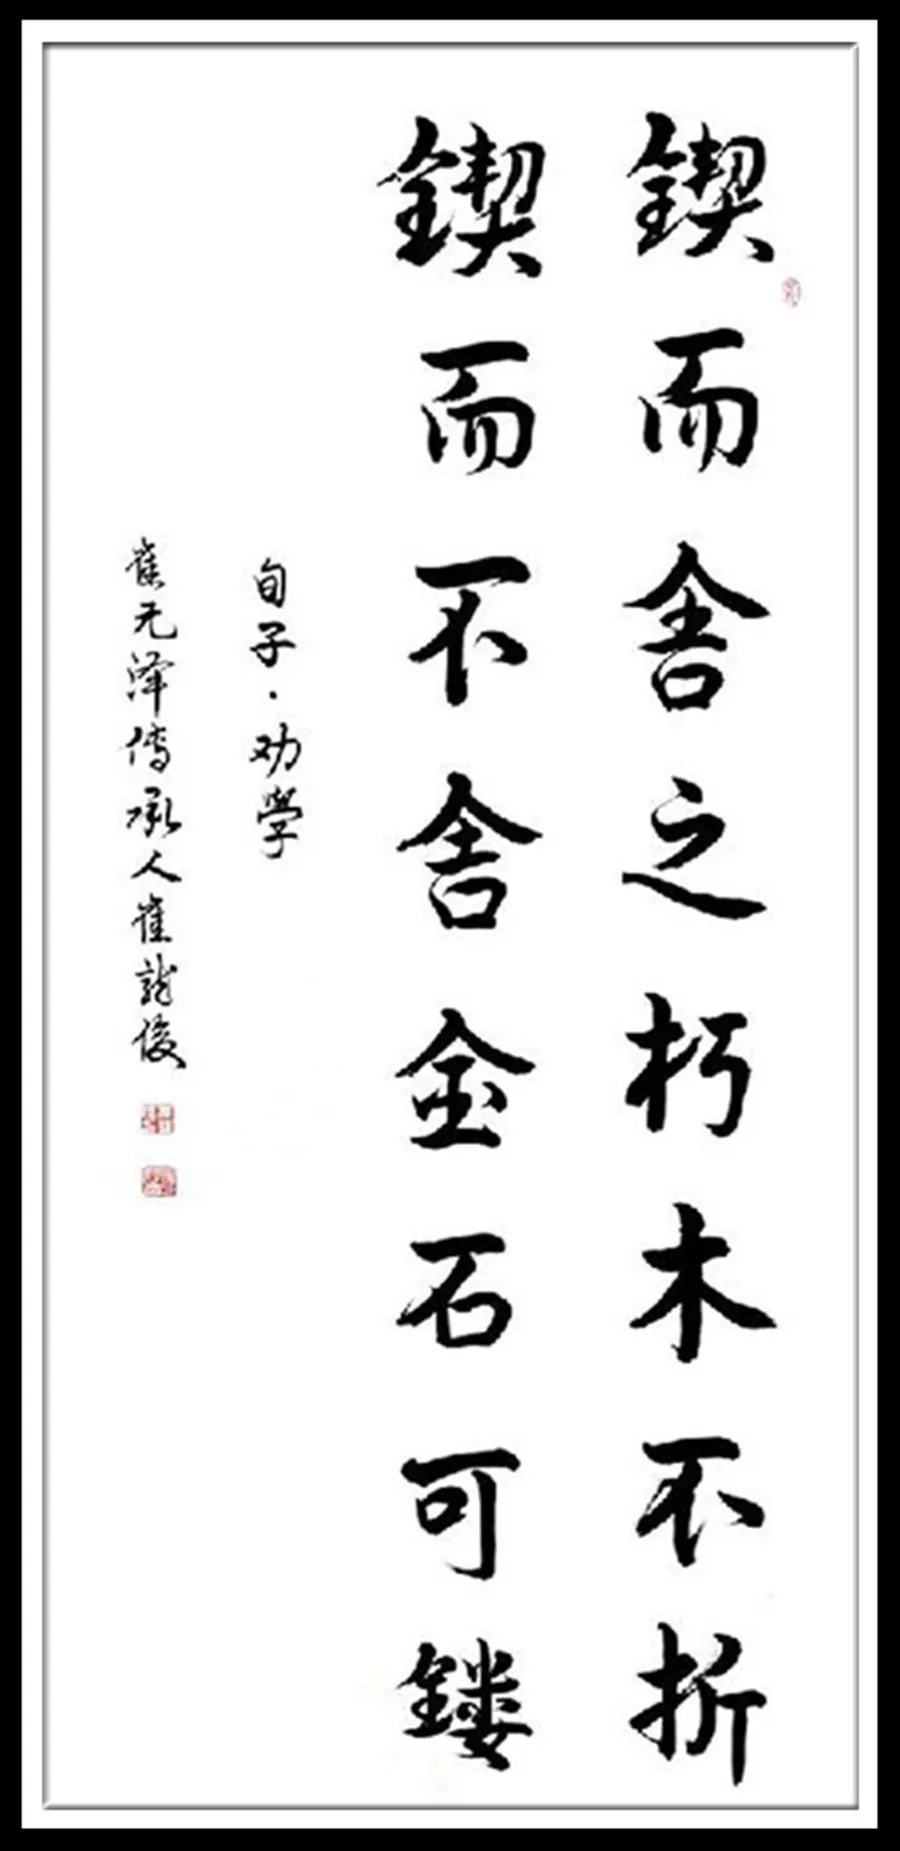 鍥而舍之朽木不折
鍥而不舍金石可镂
旬子·劝學
崔元泽傳承人崔龍俊